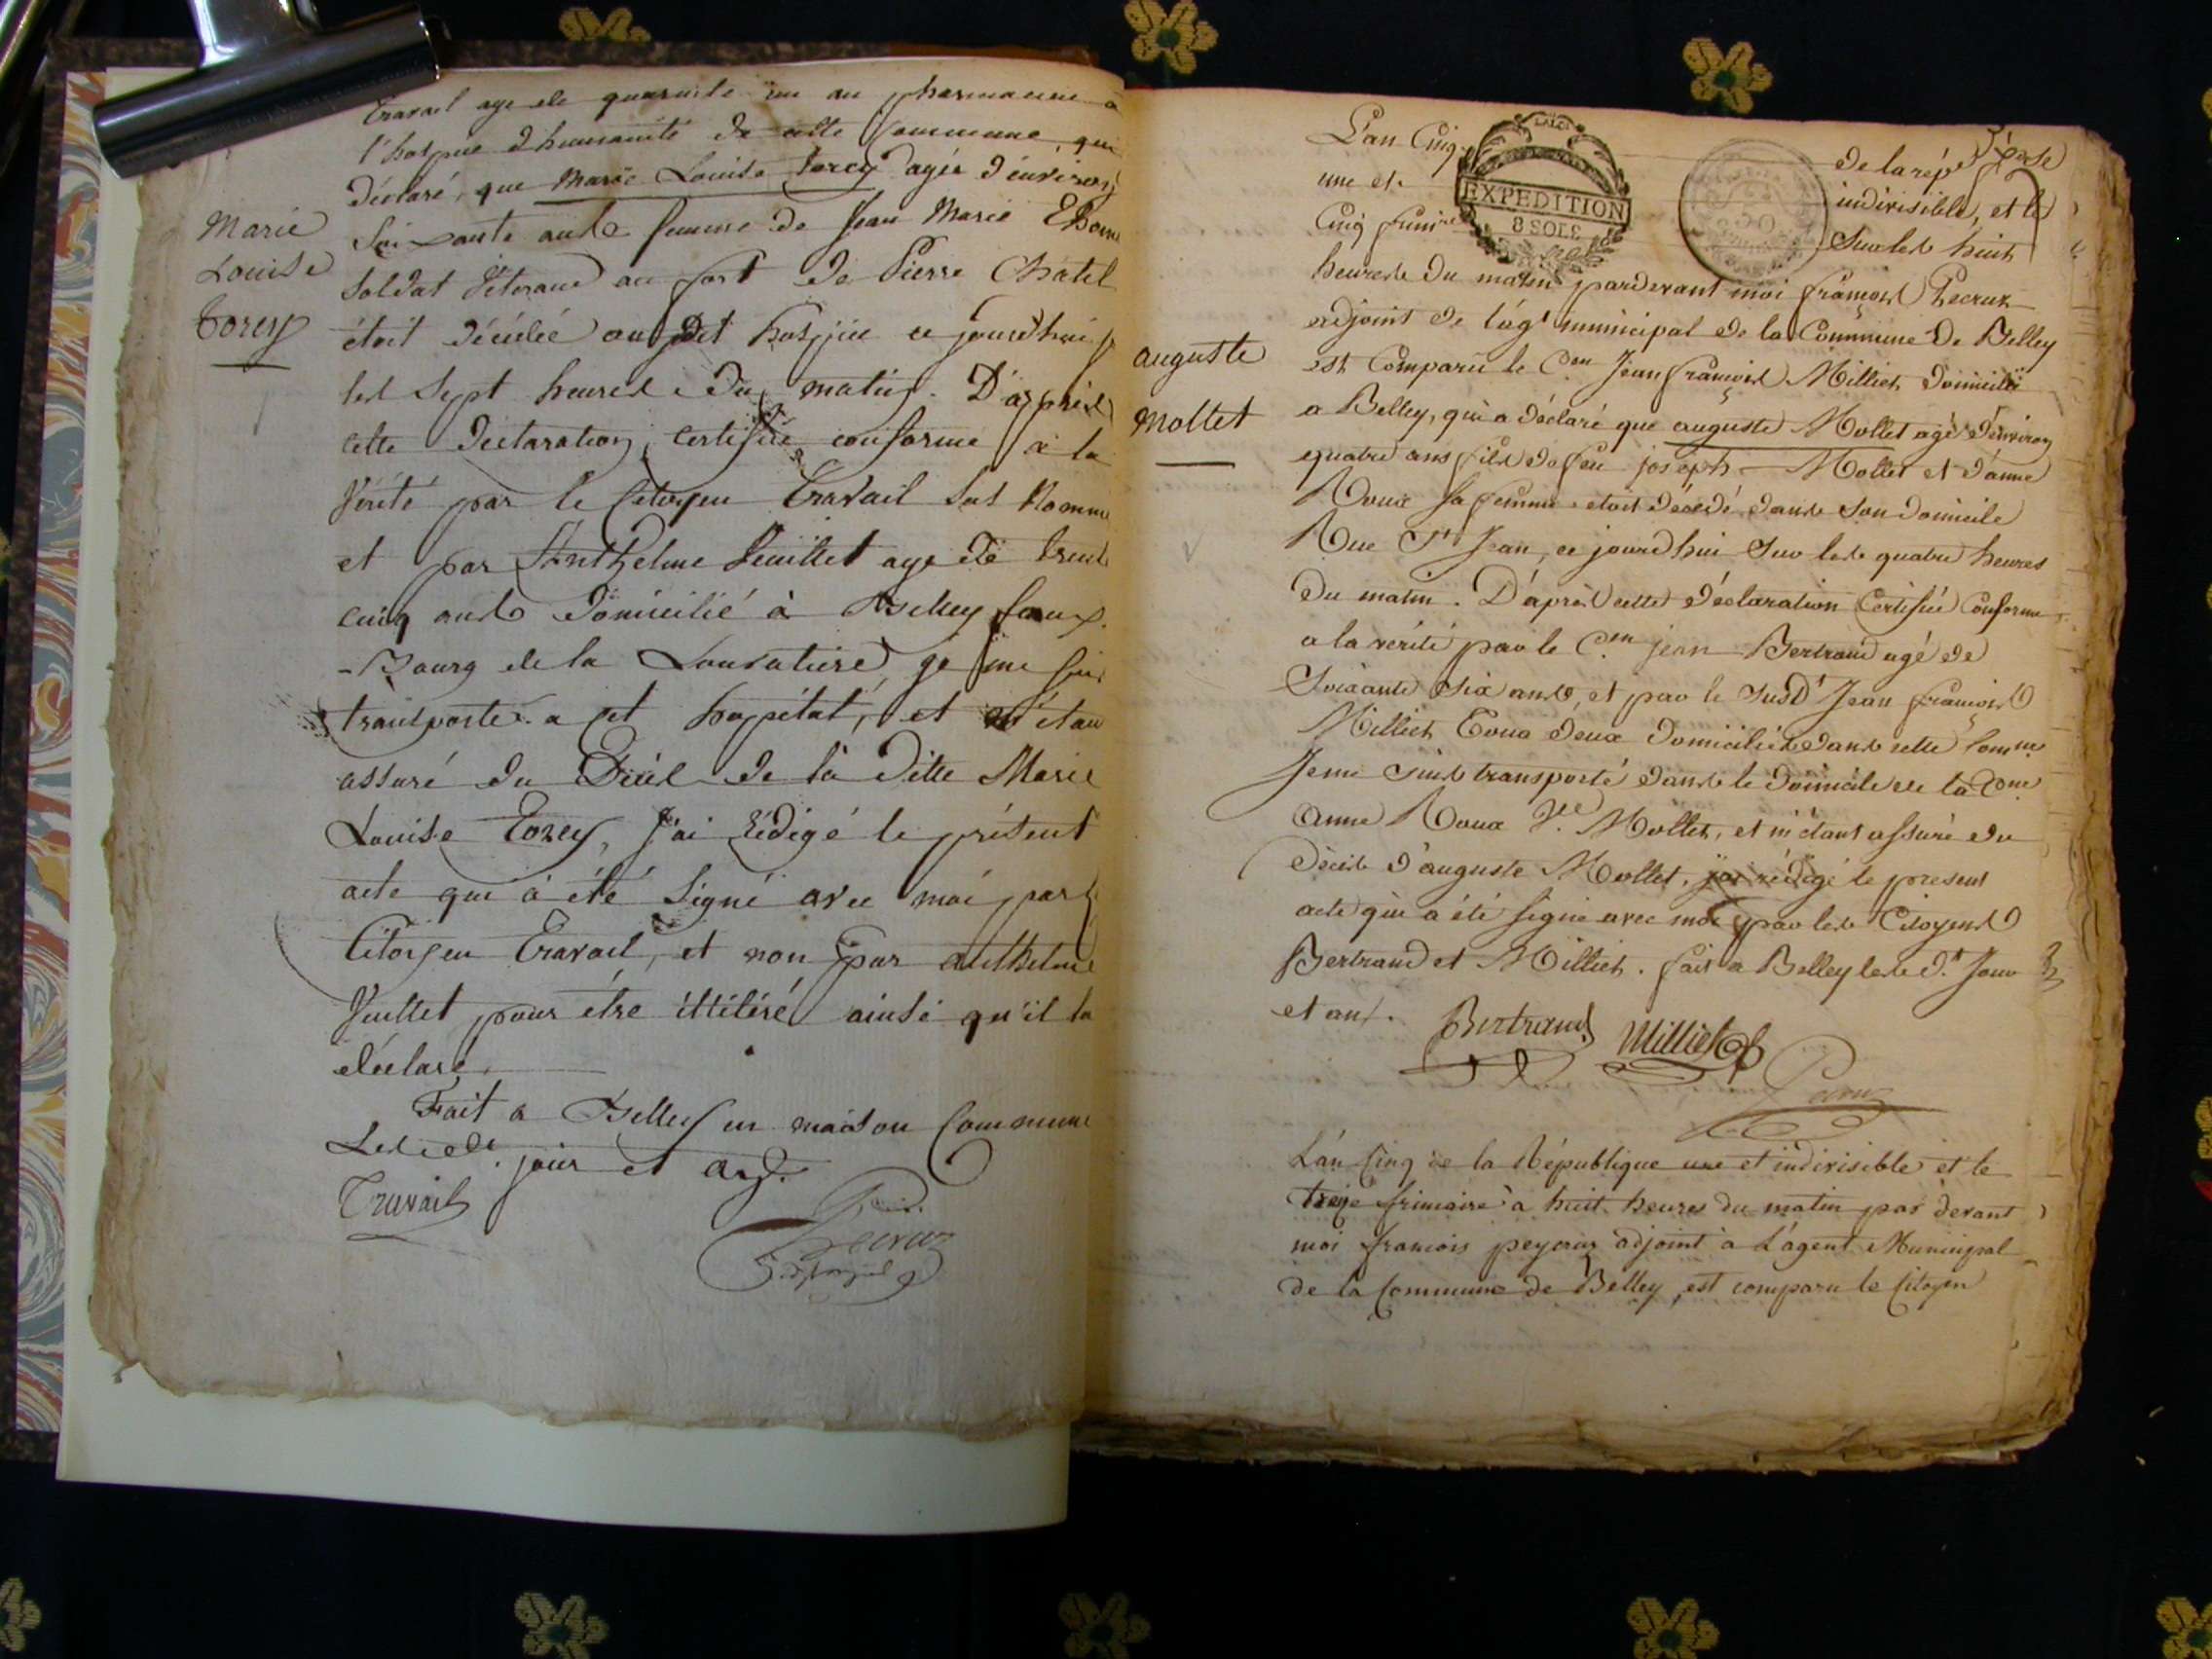 Travail age de quarante un an pharmacien a
l'hospice d'humanité de cette Commune, qui
déclaré, que Marie Louise Torey agée d'environ
Marie
Louise
Torey
Soixante ans femme de Jean Marie
Soldat Véteran au fort de Pierre Chatel
étoit décédée au dit hospice ce jourd'hui
les Sept heures du matin. D'après
cette Déclaration, Certifiée conforme à la
Vérité par le Citoyen Travail Sus Nommé
et par Anthelme Vuillet age de trente
cinq ans Domicilié à Belley faux
-Bourg de la Louvatiere, je me suis
transporté a cet hopital, et m'étan
assuré du Décès de la Ditte Marie
Louise Torey, J'ai Rédigé le présent
acte qui à été Signé avec moi par
Citoyen Travail, et non par anthelme
Vuillet pour être illitéré ainsi qu'il la
déclaré.
Fait a Belley en maison Commune
Les d. jour et an.
Travail
Pecruz
adjoint
L'an Cinq de la rép
une et indivisible, et le
Cinq frimre Sur les huit
EXPEDITION
8 SOLS
heures du matin pardevant moi françois Pecruz
adjoint de l'agt municipal de la Commune de Belley
auguste
Mollet
est Comparu le Cen Jean françois Milliet domicilié
a Belley, qui a déclaré que auguste Mollet agé d'environ
quatre ans fils de feu joseph Mollet et d'anne
Roux sa femme etoit décédé dans son domicile
Rue St Jean, ce jourd'hui Sur les quatre heures
du matin. D'après cette déclaration Certifiée Conforme
a la vérité par le Cen jean Bertrand agé de
Soixante Six ans, et par le Susdt Jean françois
Milliet Tous deux domiciliés dans cette Comme
Je me Suis transporté dans le domicile de la Cene
Anne Roux Ve. Mollet, et m'étant assuré du
décès d'auguste Mollet, j'ai rédigé le present
acte qui a été Signé avec moi par les Citoyens
Bertrand et Milliet. fait a Belley les d.t Jour
et an.
Bertrand Milliet
Pecruz
L'an Cinq de la République une et indivisible et le
treize frimaire à huit heures du matin par devant
moi francois peycruz adjoint à L'agent Municipal
de la Commune de Belley, est comparu le Citoyen